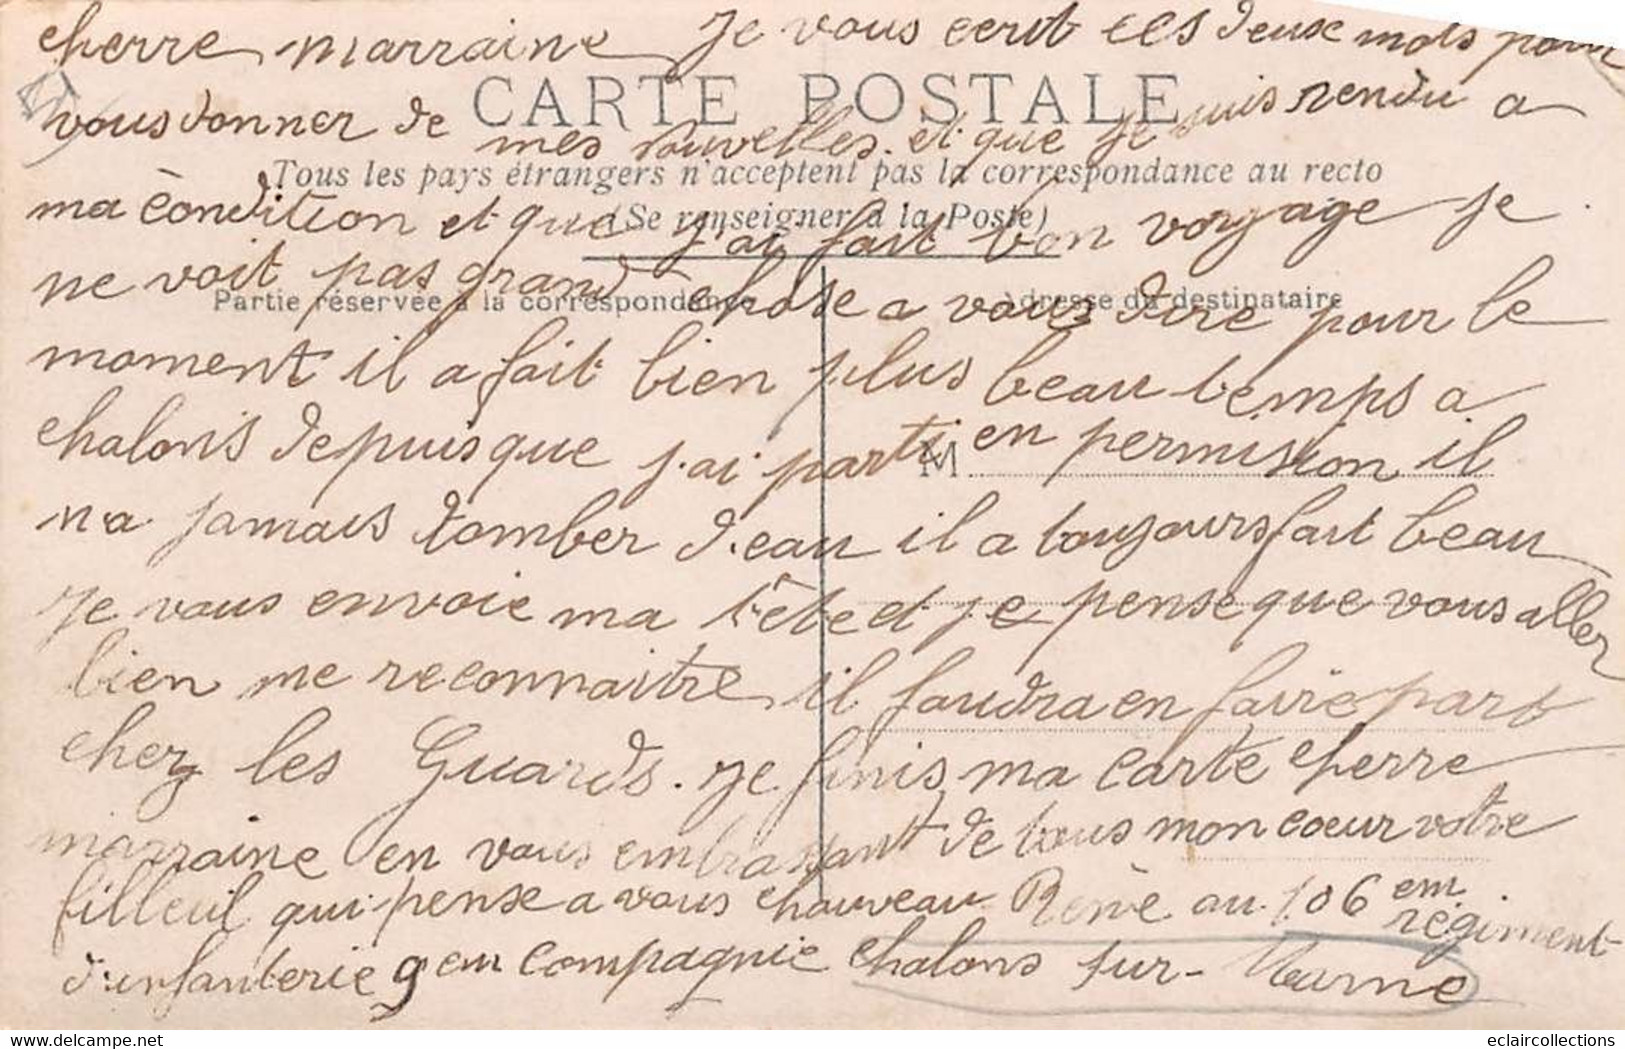 cherre marraine je vous ecrit ces deux mots pour
CARTE POSTALE
vous donner de mes nouvelles. et que je suis rendu a
Tous les pays étrangers n'acceptent pas la correspondance au recto
ma condition et que j'ai fait bon voyage je
(Se renseigner à la Poste)
ne voit pas grand chose a vous dire pour le
Partie réservée à la correspondance
Adresse du destinataire
moment il a fait bien plus beau temps a
chalons depuis que j.ai parti en permision il
M
na jamais tomber d.eau il a toujours fait beau
je vous envoie ma tête et je pense que vous aller
bien me reconnaitre il faudra en faire part
chez les Guards. je finis ma carte cherre
marraine en vous embrassant de tous mon coeur votre
filleul qui pense a vous chauveau Réné au 106 em régiment
d'infanterie 9 em compagnie chalons sur-Marne
eclaircollections